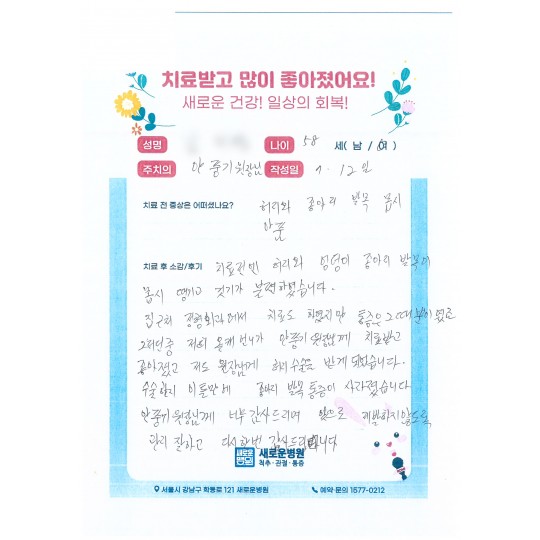 치료받고 많이 좋아졌어요!
새로운 건강! 일상의 회복!
성명 나이 58 세( 남 / 여 )
주치의 안풍기 원장님 작성일 9. 12일
치료 전 증상은 어떠셨나요? 허리와 종아리 발목 몹시
아픔
치료 후 소감/후기 치료전엔 허리와 엉덩이 종아리 발목이
몹시 땡기고 걷기가 불편하였습니다.
집근처 정형외과에서 치료도 하였지만 통증은 그때뿐이였고
그러던중 저희 올케언니가 안풍기 원장님께 치료받고
좋아졌고 저도 원장님께 허리수술을 받게 되었습니다.
수술한지 이틀만에 종아리 발목 통증이 사라졌습니다
안풍기 원장님께 너무 감사드리며 앞으로 재발하지않도록
관리 잘하고 다시한번 감사드립니다
새로운병원 새로운병원
척추·관절·통증
서울시 강남구 학동로 121 새로운병원 예약·문의 1577-0212